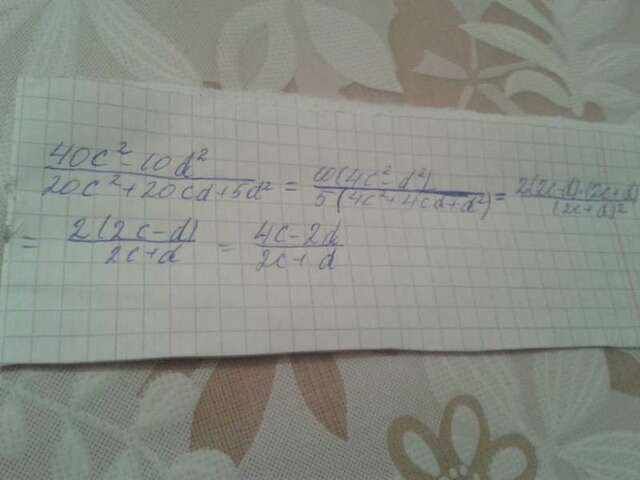 (40c² - 10d²)/(20c² + 20cd + 5d²) = 10(4c² - d²)/5(4c² + 4cd + d²) = 2(2c-d)·(2c+d)/(2c+d)²
= 2(2c-d)/2c+d = 4c-2d/2c+d